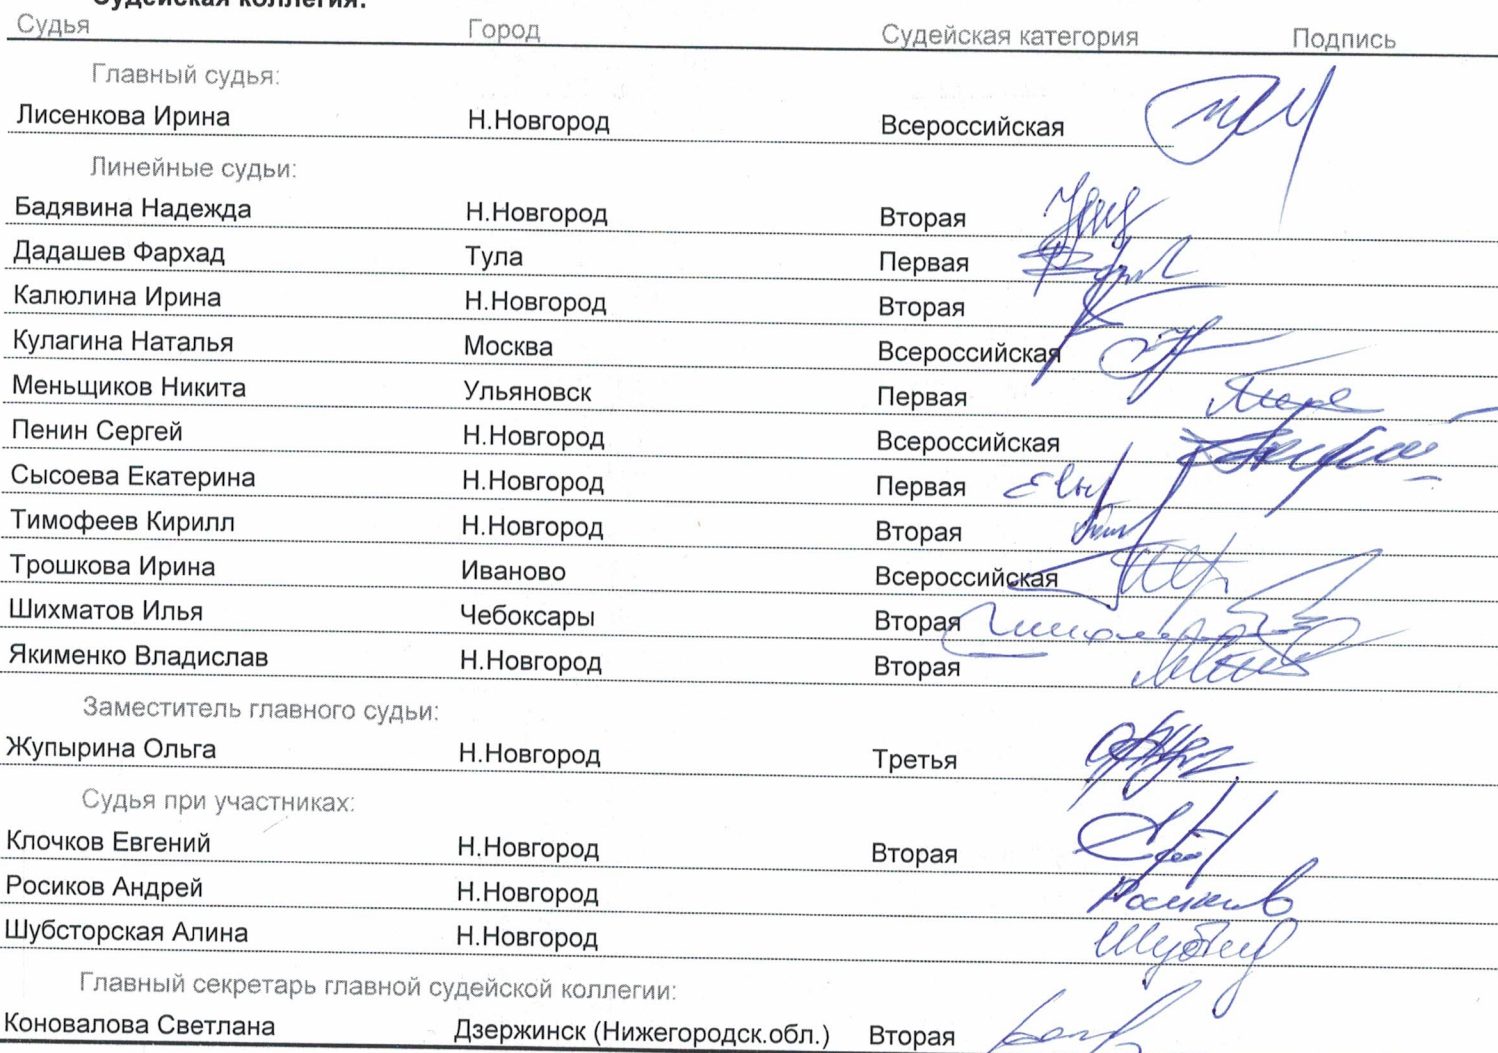 Судейская коллегия:
Судья Город Судейская категория Подпись
Главный судья:
Лисенкова Ирина Н.Новгород Всероссийская
Линейные судьи:
Бадявина Надежда Н.Новгород Вторая
Дадашев Фархад Тула Первая
Калюлина Ирина Н.Новгород Вторая
Кулагина Наталья Москва Всероссийская
Меньщиков Никита Ульяновск Первая
Пенин Сергей Н.Новгород Всероссийская
Сысоева Екатерина Н.Новгород Первая
Тимофеев Кирилл Н.Новгород Вторая
Трошкова Ирина Иваново Всероссийская
Шихматов Илья Чебоксары Вторая
Якименко Владислав Н.Новгород Вторая
Заместитель главного судьи:
Жупырина Ольга Н.Новгород Третья
Судья при участниках:
Клочков Евгений Н.Новгород Вторая
Росиков Андрей Н.Новгород
Шубсторская Алина Н.Новгород
Главный секретарь главной судейской коллегии:
Коновалова Светлана Дзержинск (Нижегородск.обл.) Вторая